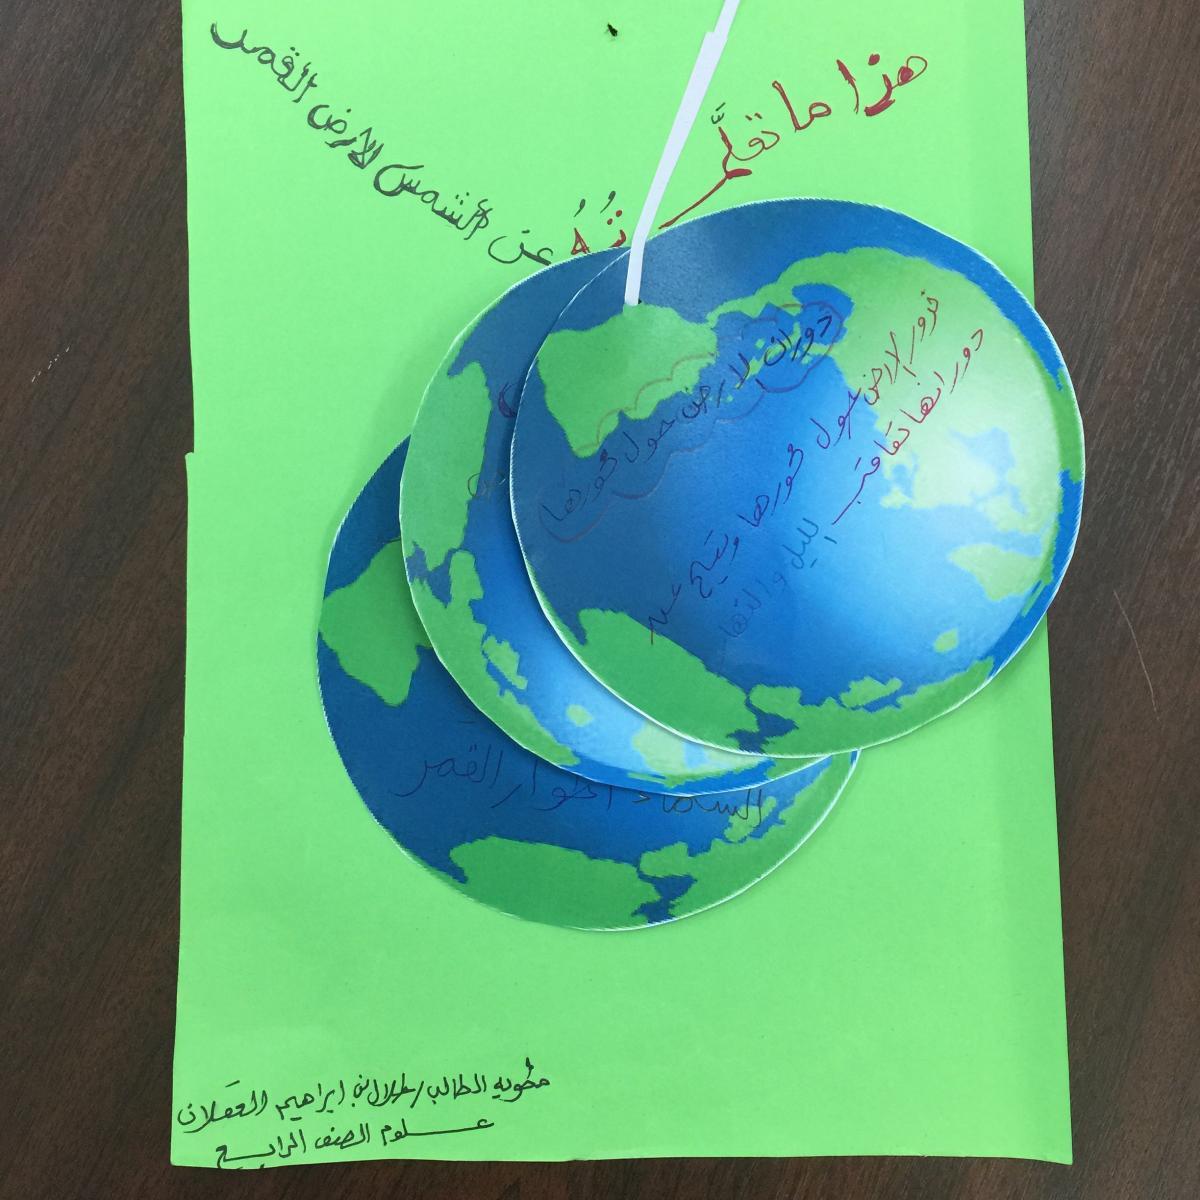 هذا ما تعلَّمتُهُ
عن الشمس الأرض القمر
دوران لارض حول محورها
تدور الارض حول محورها وينتج عن
دورانها تعاقب الليل والنها
السماء أطوار القمر
مطويه الطالب / طلال بن ابراهيم العقلان
علوم الصف الرابع